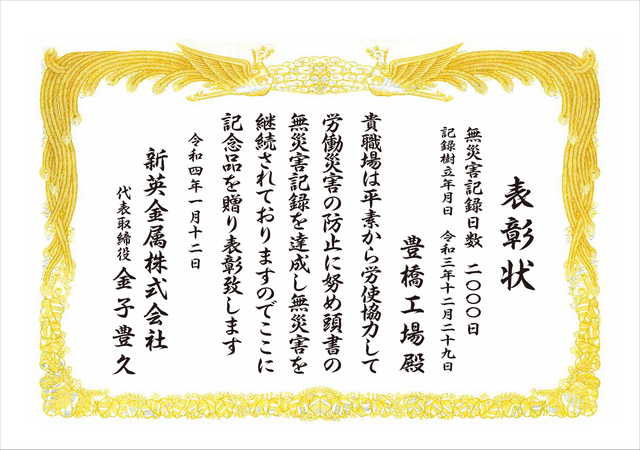 表彰状
無災害記録日数 二〇〇〇日
記録樹立年月日 令和三年十二月二十九日
豊橋工場殿
貴職場は平素から労使協力して
労働災害の防止に努め頭書の
無災害記録を達成し無災害を
継続されておりますのでここに
記念品を贈り表彰致します
令和四年一月十二日
新英金属株式会社
代表取締役 金子豊久